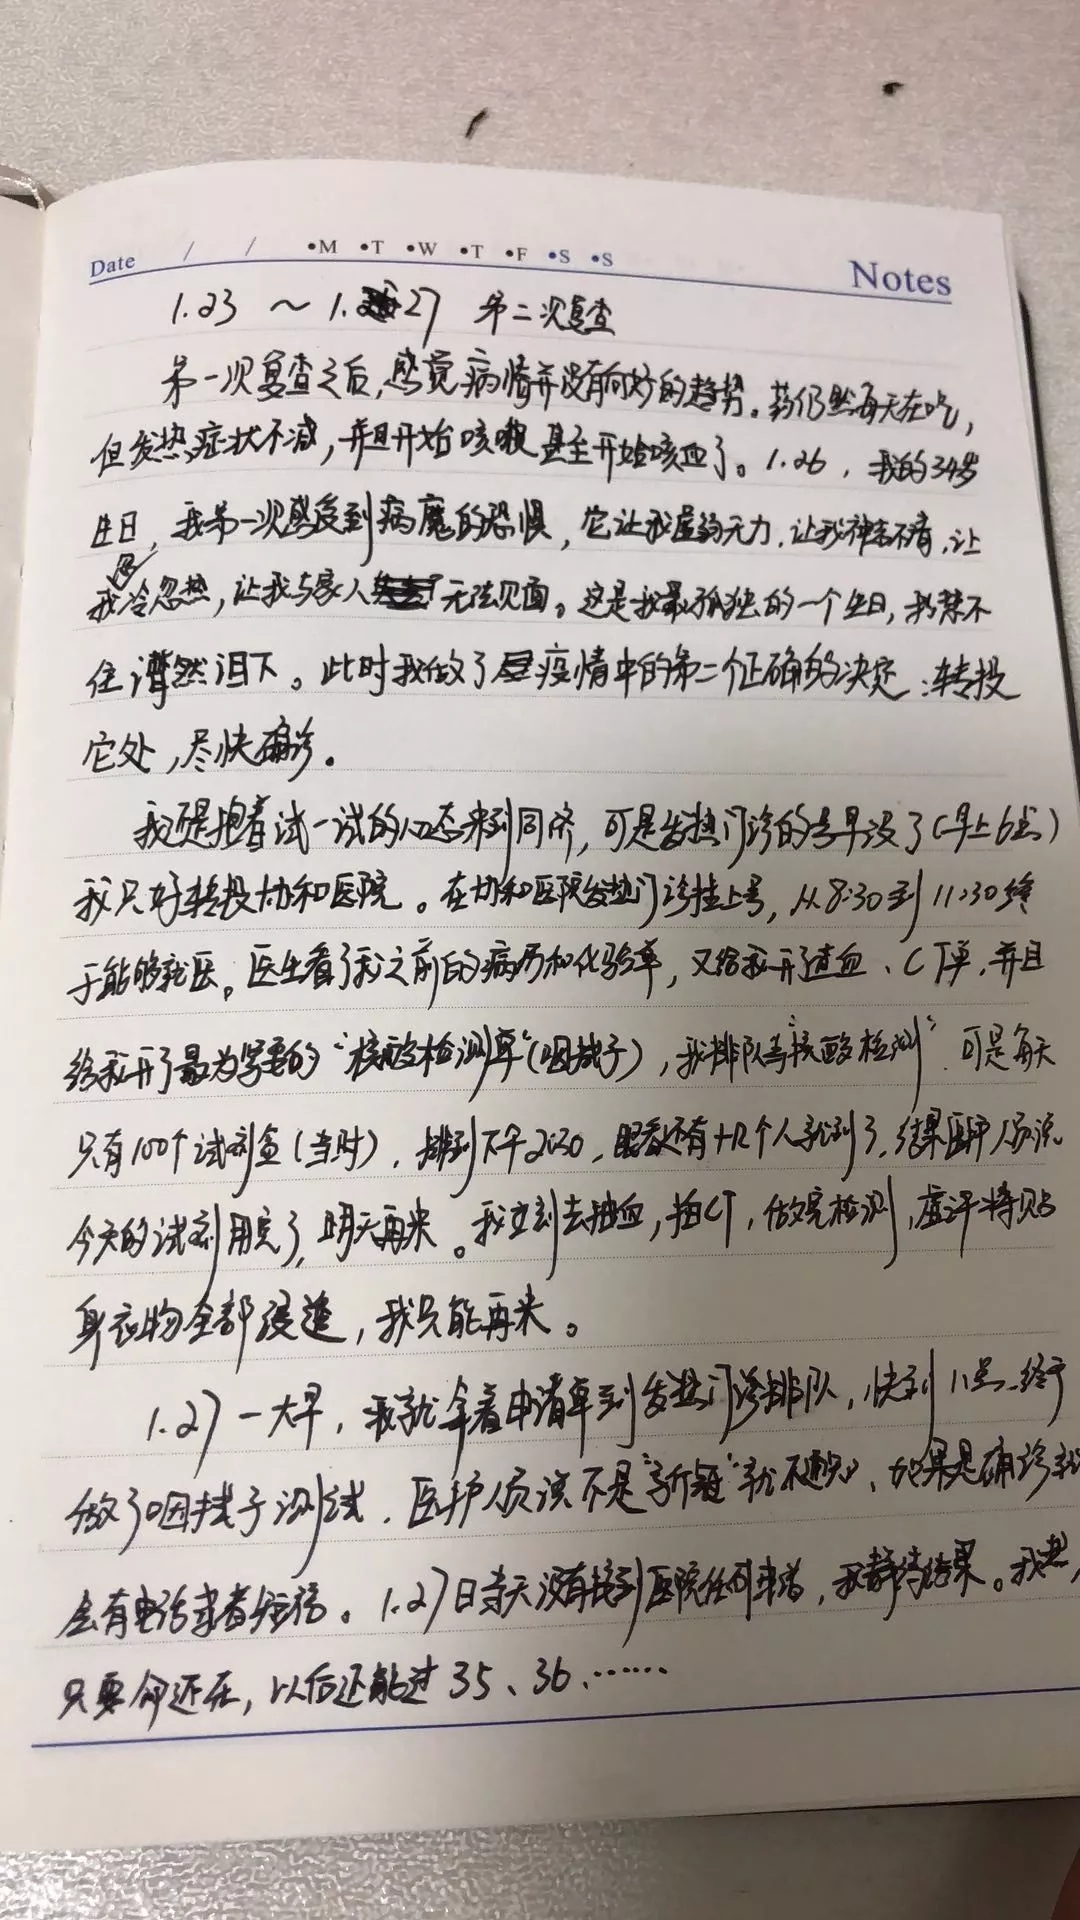 Date / / •M •T •W •T •F •S •S
Notes
1.23 ~ 1.27 第二次复查
第一次复查之后,感觉病情并没有向好的趋势。药仍然每天在吃,
但发热症状不减,并且开始咳嗽甚至开始咳血了。1.26,我的34岁
生日,我第一次感受到病魔的恐惧,它让我虚弱无力,让我神志不清,让
我忽冷忽热,让我与家人无法见面。这是我最孤独的一个生日,我禁不
住潸然泪下。此时我做了疫情中的第二个正确的决定:转投
它处,尽快确诊。
我还是抱着试一试的心态来到同济,可是发热门诊的号早没了(早上6点)
我只好转投协和医院。在协和医院发热门诊挂上号,从8:30到11:30终
于能够就医。医生看了我之前的病历和化验单,又给我开了查血、CT单,并且
给我开了最为紧要的“核酸检测单”(咽拭子),我排队等“核酸检测”.可是每天
只有100个试剂盒(当时),排到下午2:30,眼看还有十几个人就到了,结果医护人员说
今天的试剂用完了,明天再来。我立刻去抽血,拍CT,做完检测,虚汗将贴
身衣物全部浸透,我只能再来。
1.27一大早,我就拿着申请单到发热门诊排队,快到11点,终于
做了咽拭子测试.医护人员说不是“新冠”就不通知,如果是确诊就
会有电话或者短信。1.27日当天没有接到医院任何来信,我静待结果。我想,
只要命还在,以后还能过35、36、……